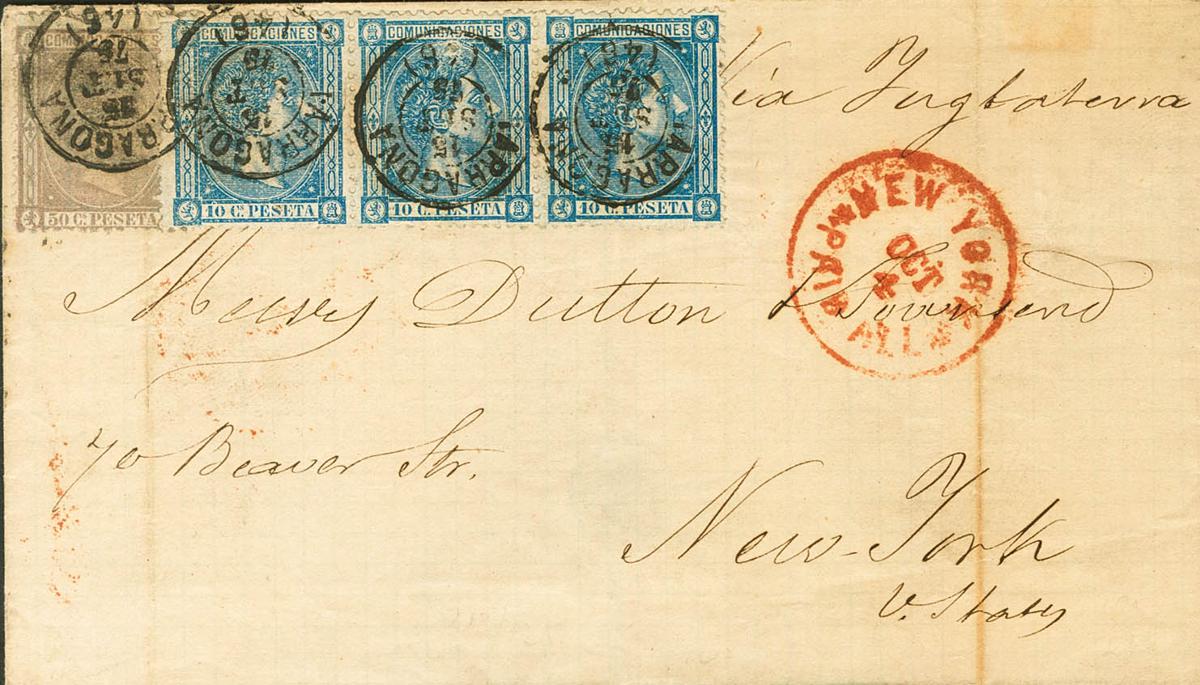 COMUNICACIONES COMUNICACIONES COMUNICACIONES
TARRAGONA (46) TARRAGONA (46) TARRAGONA (46) TARRAGONA (46)
50 Cs. PESETA 10 Cs. PESETA 10 Cs. PESETA 10 Cs. PESETA
Via Inglaterra
NEW YORK
OCT
4
PAID ALL
Messrs Dutton & Townsend
70 Beaver Str.
New-York
U. States